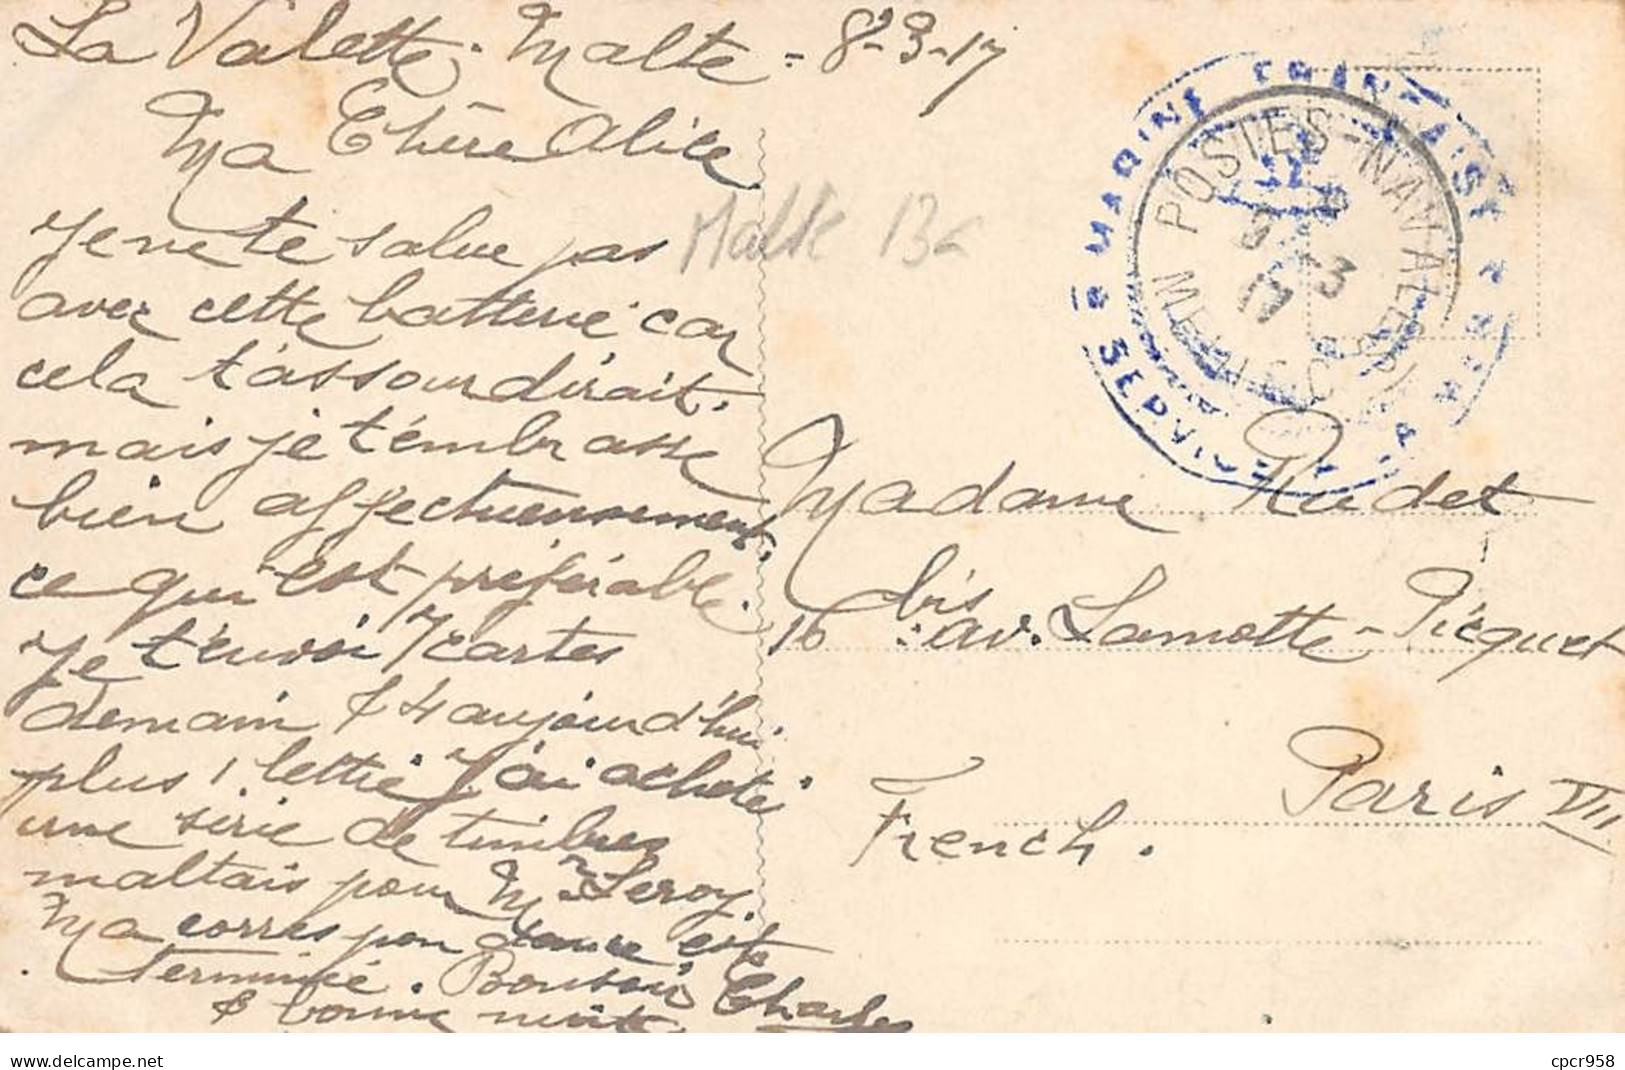 La Valette. Malte - 8-3-17
Ma Chère Alice
Je ne te salue pas
avec cette batterie car
cela t'assourdirait.
mais je t'embrasse
bien affectueusement,
ce qui est préférable.
Je t'envoi 7 cartes
demain & 4 aujourd'hui
plus 1 lettre J'ai acheté
une série de timbres
maltais pour Mr Leroy.
Ma correspondance est
terminée. Bonsoir Charles
& bonne nuit
Malte 13
MARINE FRANÇAISE
SERVICE A LA MER
POSTES NAVALES
8 3
17
Madame Radet
16 bis av. Lamotte-Picquet
Paris VII
French.
delcampe.net
cpcr958